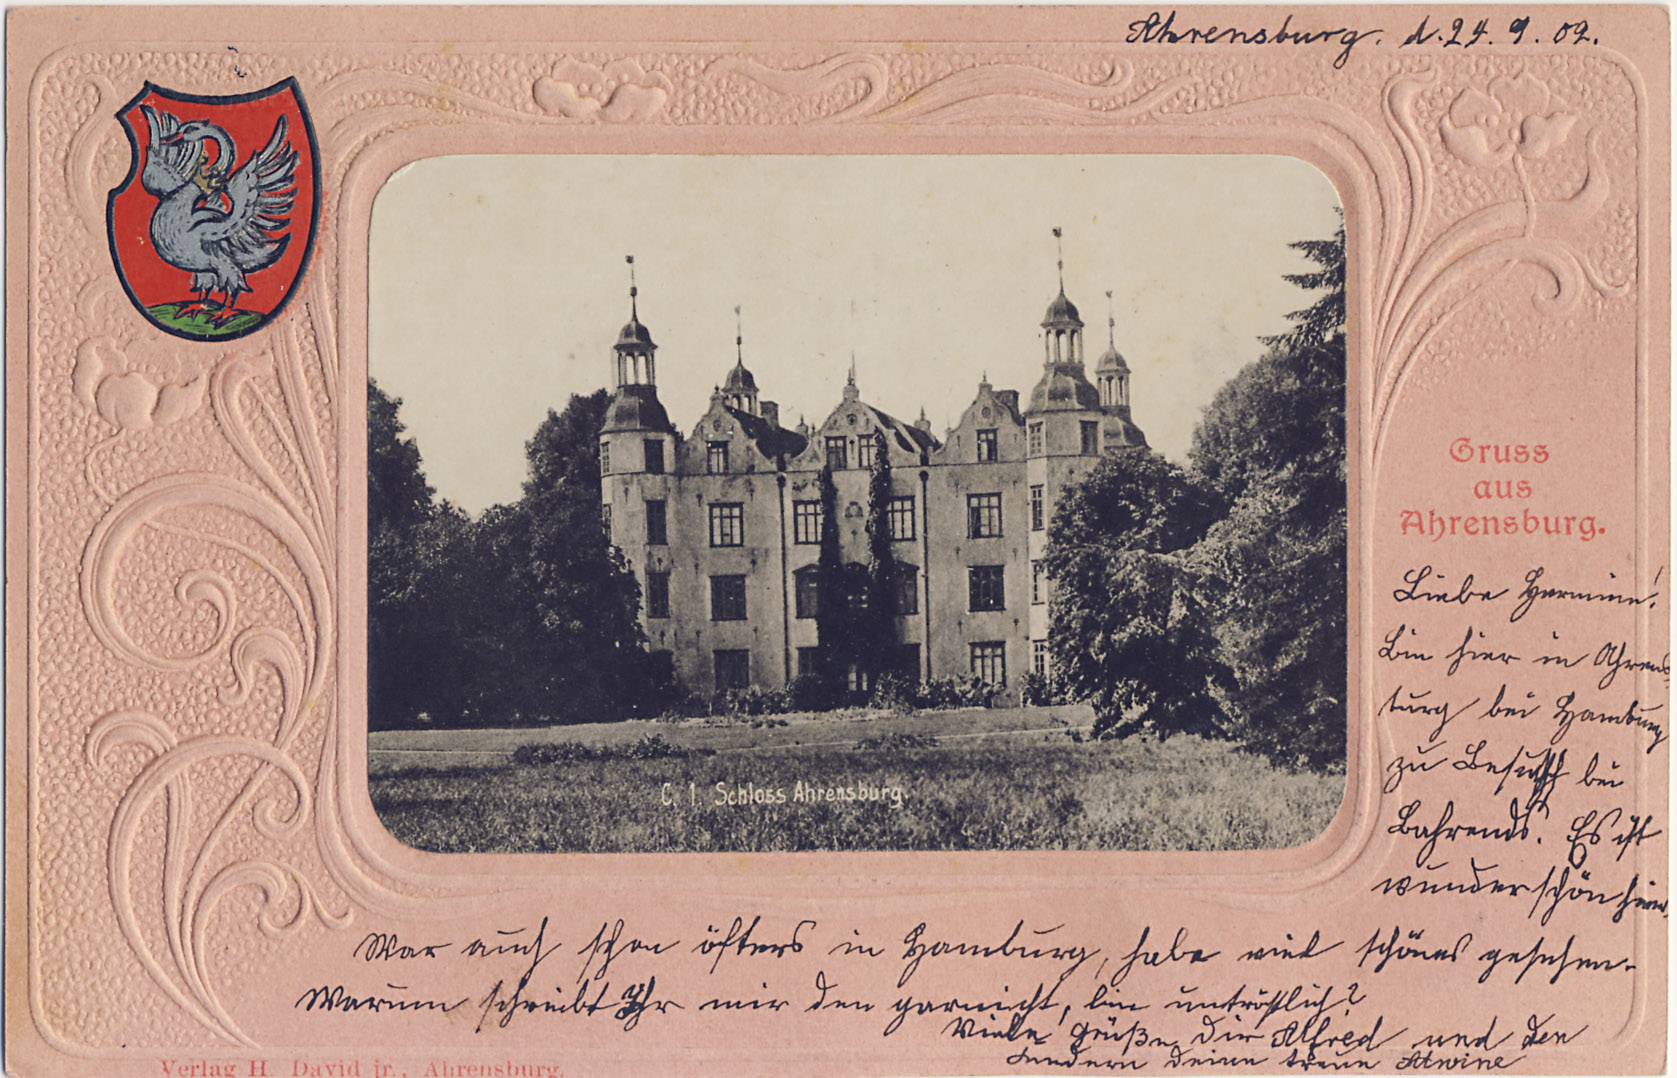 Ahrensburg. d. 24. 9. 02.
Gruss
aus
Ahrensburg.
Liebe Hermine!
Bin hier in Ahrens
burg bei Hamburg
zu Besuch bei
Bahrends. Es ist
wunderschön hier.
War auch schon öfters in Hamburg, habe viel schönes gesehen.
Warum schreibt Ihr mir den garnicht, bin untröstlich?
Viele Grüße Dir Alfred und den
Kindern Deine treue
C. 1. Schloss Ahrensburg.
Verlag H. David jr., Ahrensburg.